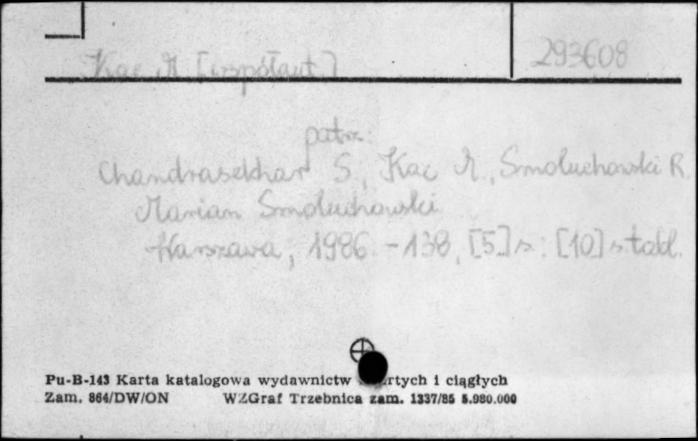 293608
Kac M [współaut.]
patrz:
Chandrasekhar S., Kac M., Smoluchowski R.
Marian Smoluchowski
Warszawa, 1986. - 138, [5] s : [10] s tabl.
Pu-B-143 Karta katalogowa wydawnictw rtych i ciągłych
Zam. 864/DW/ON WZGraf Trzebnica zam. 1337/85 5.980.000